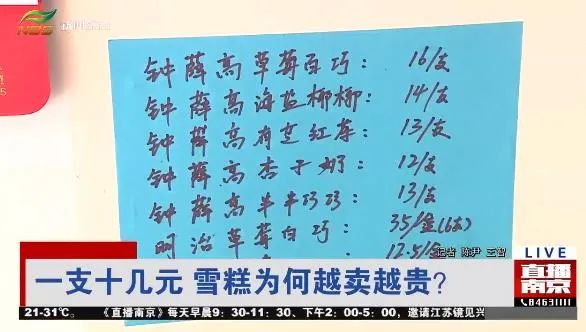 NBS
钟薛高草莓白巧：16/支
钟薛高海盐椰椰：14/支
钟薛高有芝红莓：13/支
钟薛高杏子奶：12/支
钟薛高半牛巧巧：13/支
明治草莓白巧：35/盒(6支)
12.5/盒
记者 陈尹 王智
一支十几元 雪糕为何越卖越贵？
LIVE
直播南京
84631111
21-31℃。 《直播南京》每天早晨9：30-11：30、下午2：00-5：00，邀请江苏镜见兴